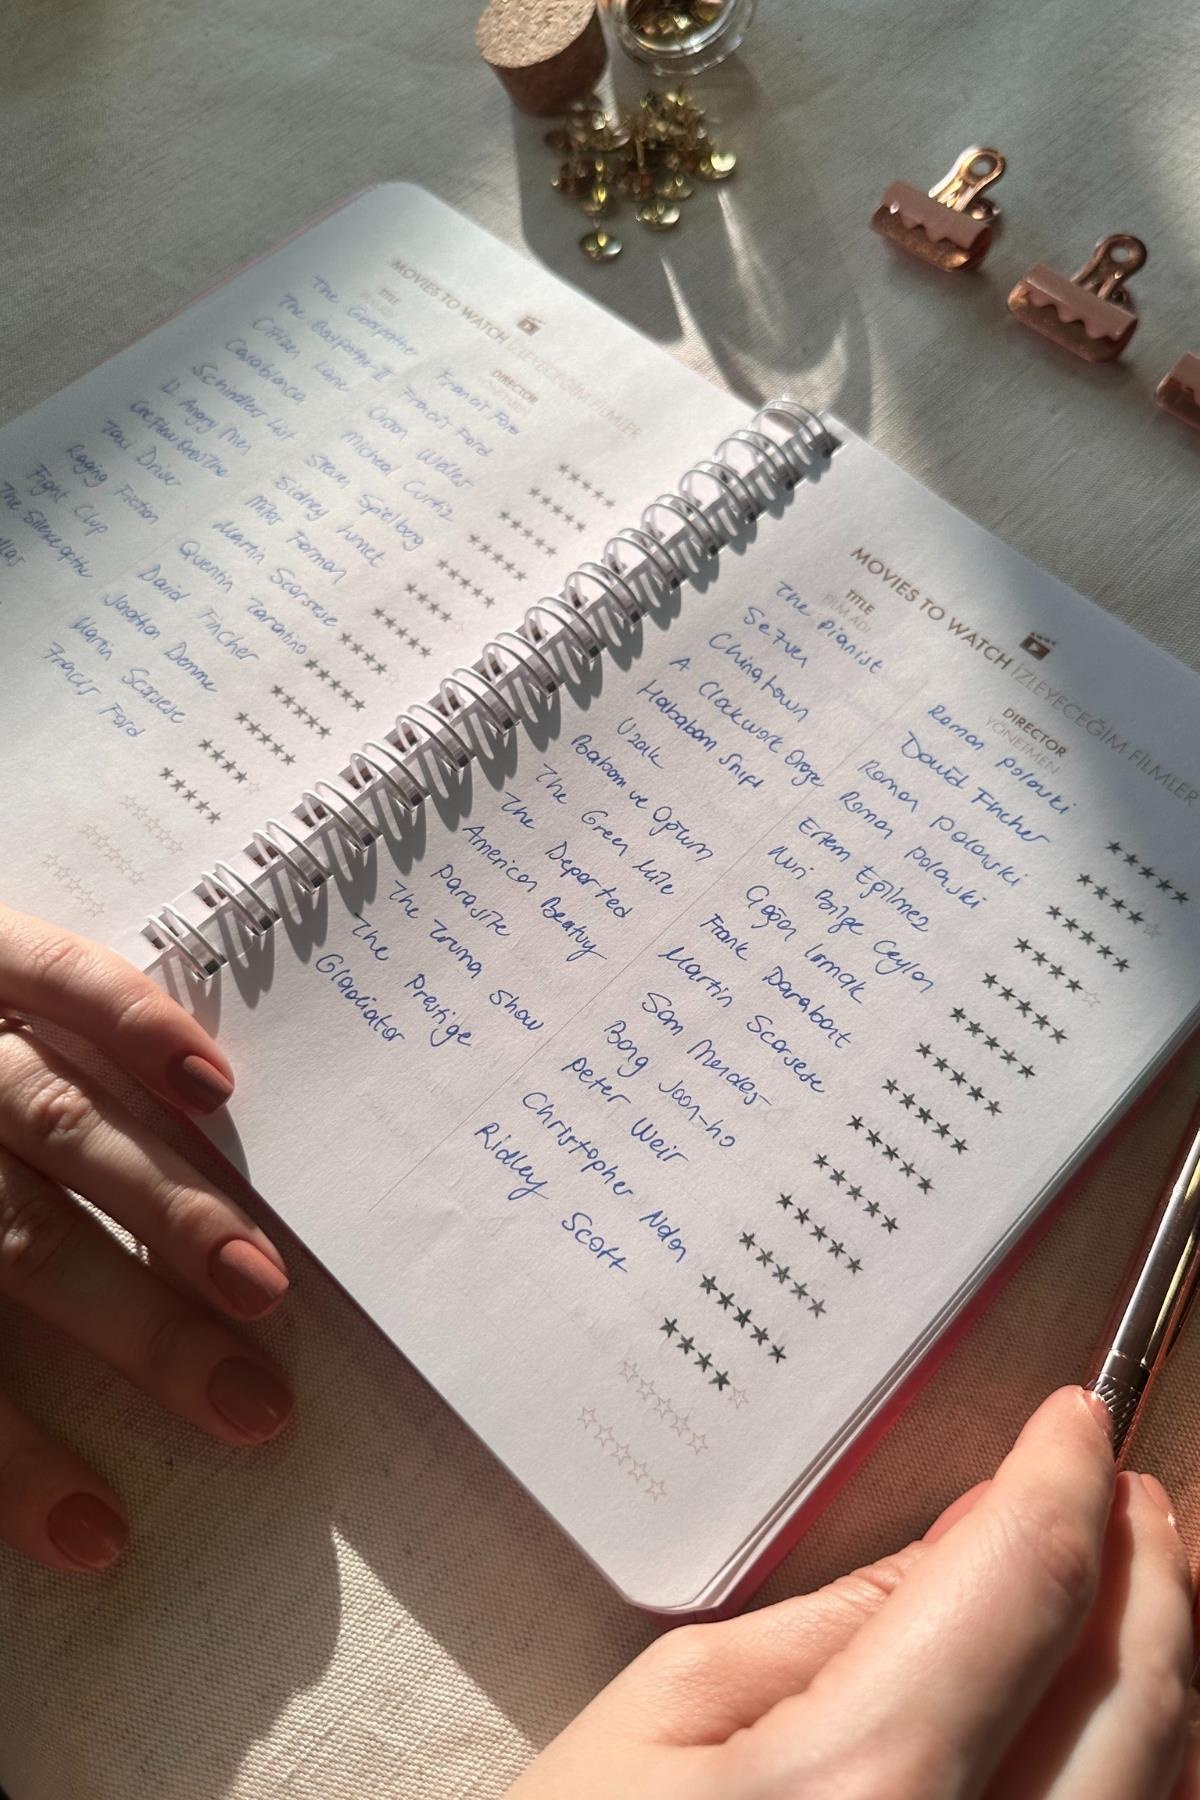 MOVIES TO WATCH | İZLEYECEĞİM FİLMLER
TITLE DIRECTOR
YÖNETMEN
The Godfather Francis Ford
The Godfather II Francis Ford
Citizen Kane Orson Welles
Casablanca Micheal Curtiz
Schindlers List Steven Spielberg
12 Angry Men Sidney Lumet
Milos Forman
Taxi Driver Martin Scorsese
Fiction Quentin Tarantino
Fight Clup David Fincher
The Silence of the Jonathan Demme
Raging Martin Scorsese
Francis Ford
MOVIES TO WATCH | İZLEYECEĞİM FİLMLER
TITLE DIRECTOR
FİLM ADI YÖNETMEN
The pianist Roman polanski
Se7ven David Fincher
Chinatown Roman Polanski
A Clockwork Orange Roman Polanski
Hababam Sınıfı Ertem Eğilmez
Uzak Nuri Bilge Ceylan
Babam ve Oğlum Çağan Irmak
The Green Mile Frank Darabont
The Departed Martin Scorsese
American Beatuy Sam Mendes
Parasite Bong Joon-ho
The Truma Show Peter Weir
The Prestige Christopher Nolan
Gladiator Ridley Scott